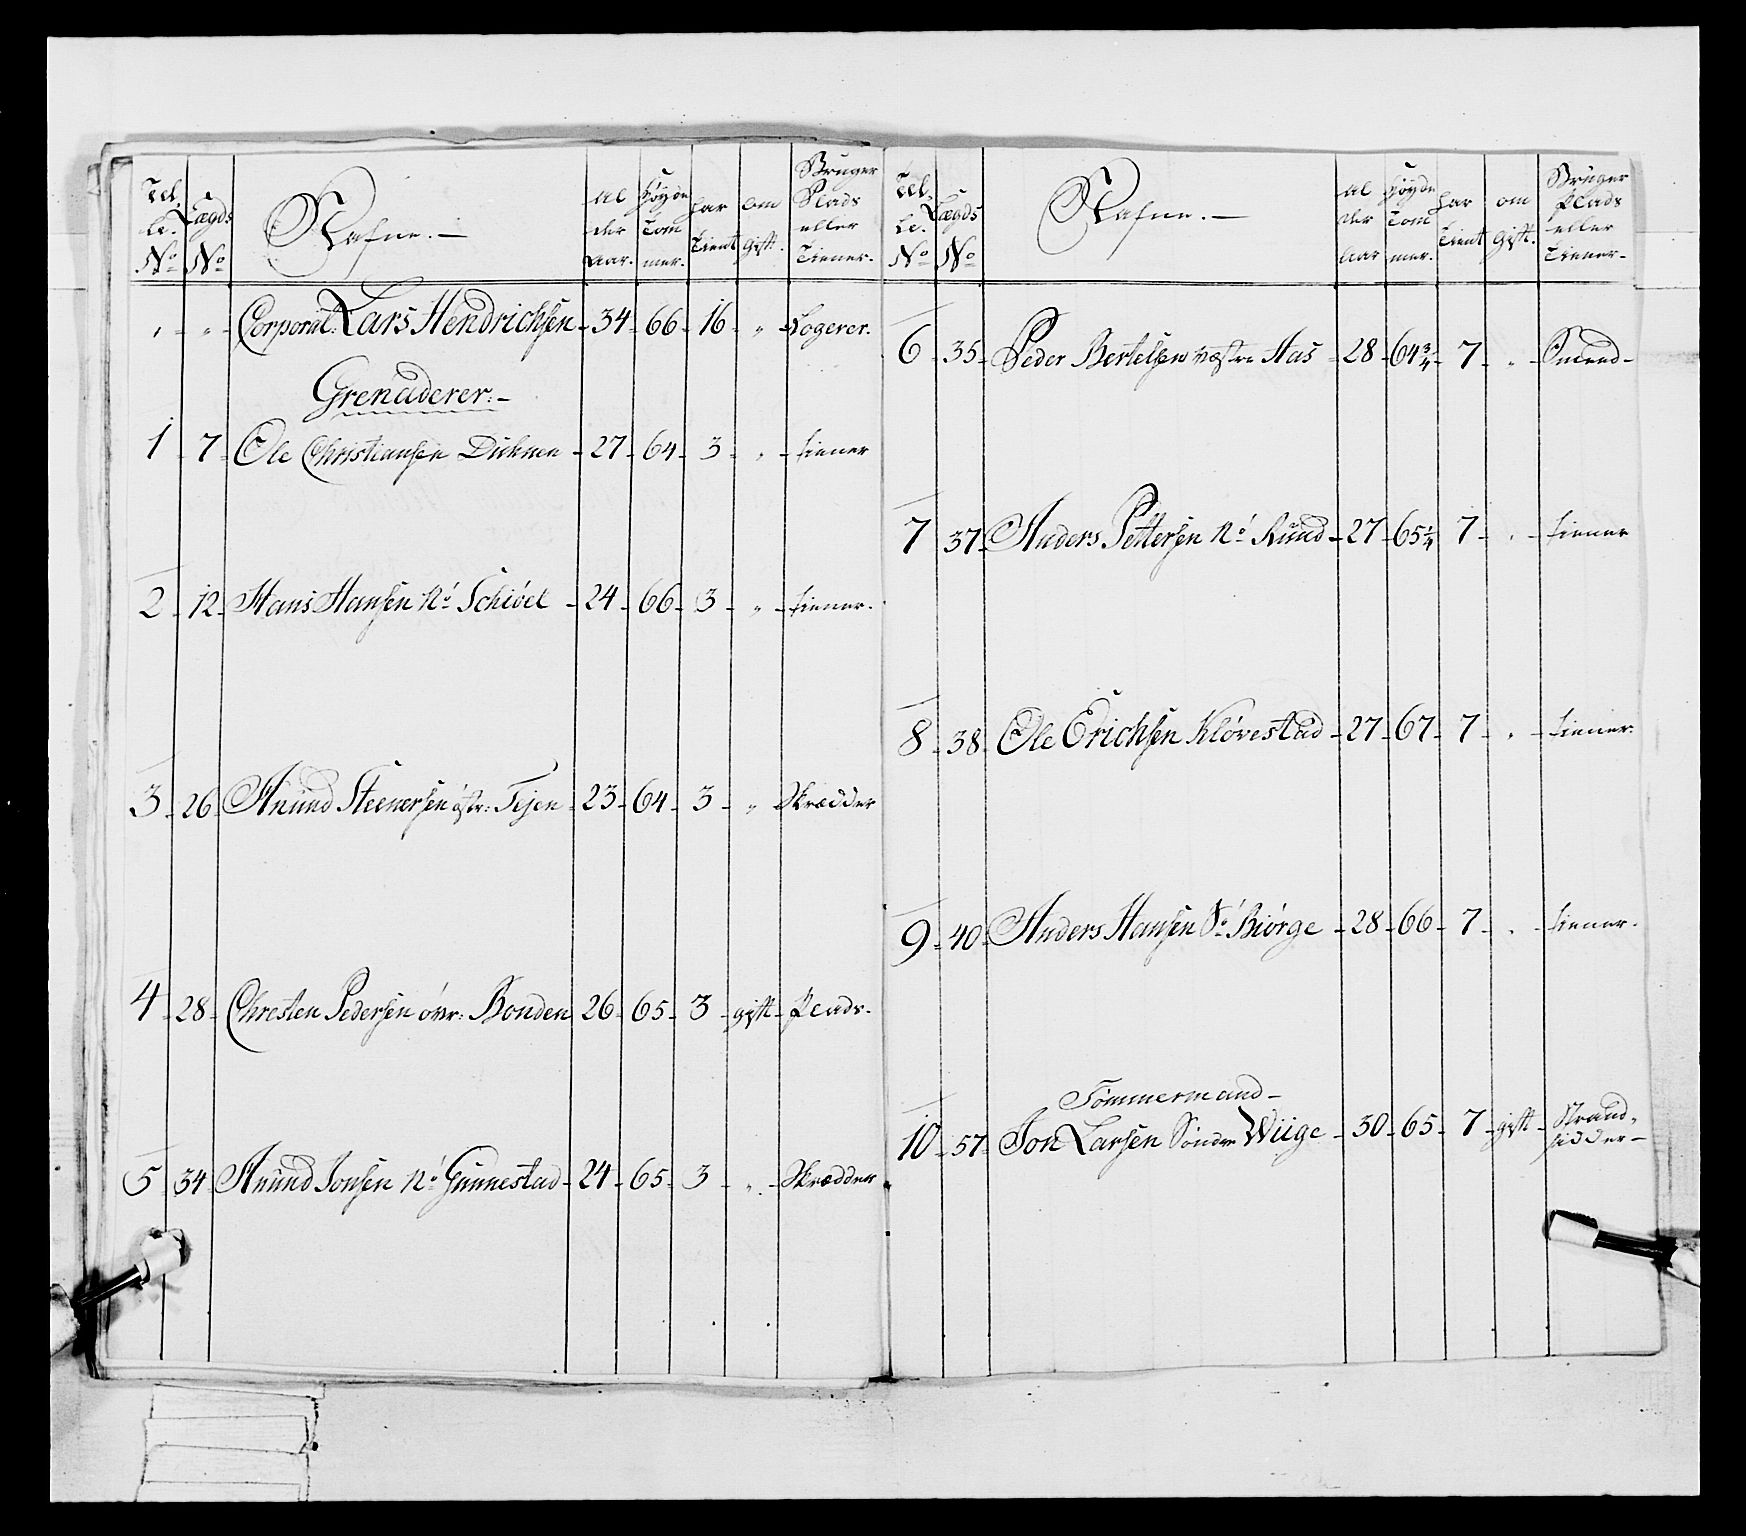 Tel-
le.
No
Lægds
No
Nafne.
Al
der
Aar.
Høyde
Tom
mer.
har
tient
om
gift.
Bruger
Plads
eller
tiener.
" " Corporal: Lars Hendrichsen 34 66 16 " Logerer.
Grenaderer:
1 7 Ole Christiansen 27 64 3 " tiener
2 12 Hans Hansen No Schiøel 24 66 3 " tiener.
3 26 Anund Steenersen østr: Tejen 23 64 3 " Skrædder
4 28 Chresten Pedersen övr: Bonden 26 65 3 gift Plads.
5 34 Anund Jonsen No Gunnestad 24 65 3 " Skrædder
Tel-
le.
No
Lægds
No
Nafne.
Al
der
Aar
Høyde
Tom
mer.
har
tient
om
gift.
Bruger
Plads
eller
tiener
6 35 Peder Bertelsen væstre Aas 28 64 3/4 7 "
7 37 Anders Pettersen No Rund 27 65 1/4 7 " tiener
8 38 Ole Erichsen Kløvestad 27 67 7 " tiener.
9 40 Anders Hansen So Biørge 28 66 7 " tiener.
Tømmermand
10 57 Jon Larsen Søndre Wiige 30 65 7 gift Strand-
sidder